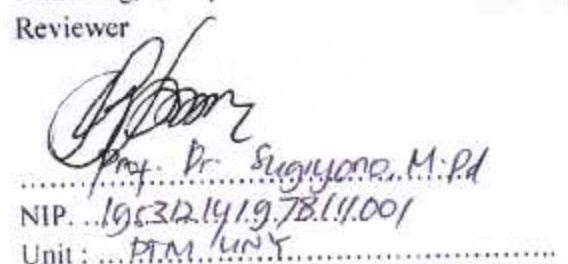 Reviewer
Prof. Dr. Sugiyono, M.Pd
NIP. 195312141978111001
Unit : PTM UNY